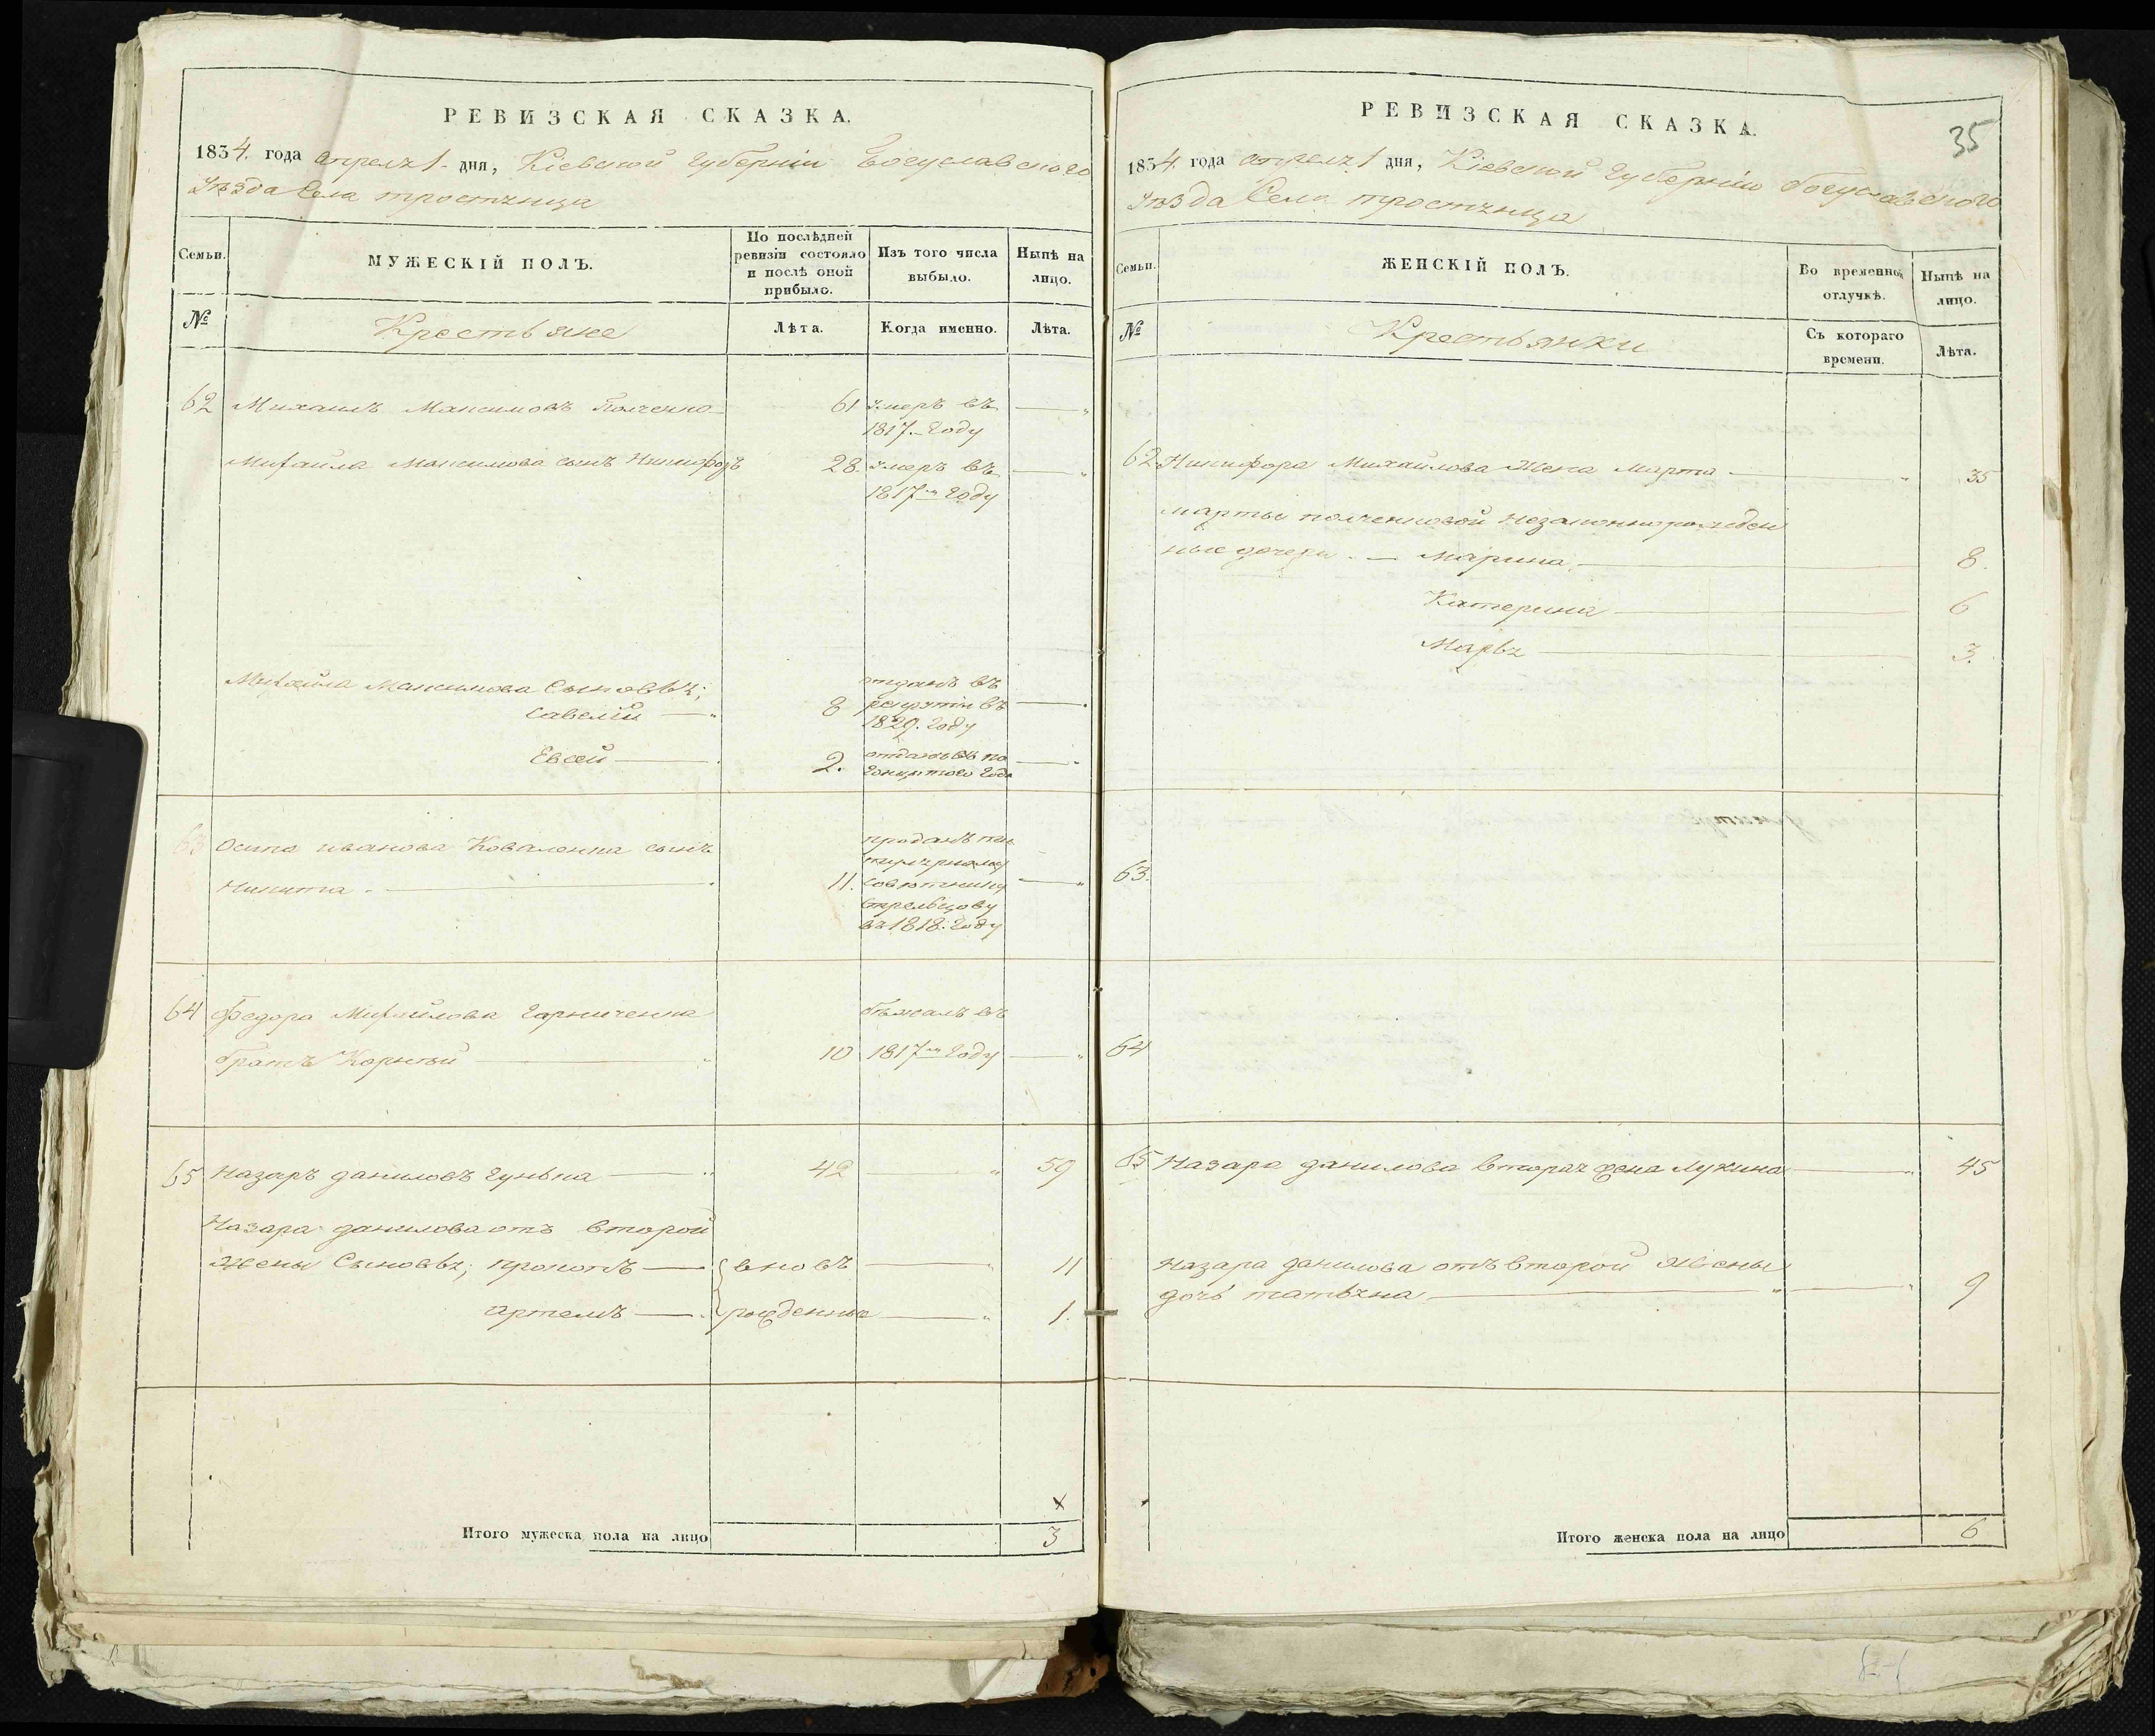 РЕВИЗСКАЯ СКАЗКА.
1834. года апреля 1. дня, Кіевской губерніи Богуславского
Уѣзда Села тростянца
Семьи.
МУЖЕСКІЙ ПОЛЪ.
По послѣдней
ревизіи состояло
и послѣ оной
прибыло.
Изъ того числа
выбыло.
Нынѣ на
лицо.
№
Крестьяне
Лѣта.
Когда именно.
Лѣта.
62 Михаилъ Максимовъ 61 умеръ въ
1817. году
Михайла Максимова сынъ Никифоръ 28. умеръ въ
1817м году
Михайла Максимова Сыновья; отданъ въ
Савелій 8 рекруты въ
1829. году
Евсей 2. отданъ въ по
того года
63 Осипа иванова Коваленка сынъ проданъ
Никита 11. совѣтнику
Стрельцову
въ 1818. году
64 Федора Михайлова Гарниченка бѣжалъ въ
братъ Корнѣй 10 1817м году
65 Назаръ даниловъ Гунька 42 59
Назара данилова отъ второй
жены Сыновья; прокопъ вновь 11
артемъ рожденные 1.
Итого мужеска пола на лицо 3
РЕВИЗСКАЯ СКАЗКА.
35
1834 года апреля 1 дня, Кіевской Губерніи Богуславского
Уѣзда Села тростянца
Семьи.
ЖЕНСКІЙ ПОЛЪ.
Во временной
отлучкѣ.
Нынѣ на
лицо.
№
Крестьянки
Съ котораго
времени.
Лѣта.
62 Никифора Михайлова Жена Марта 35
марты полченковой незаконнорожден
ные дочери. Марина 8.
Катерина 6
Марья 3.
63.
64
65 Назара данилова вторая жена Лукина 45
Назара данилова отъ второй жены
дочь татьяна 9
Итого женска пола на лицо 6